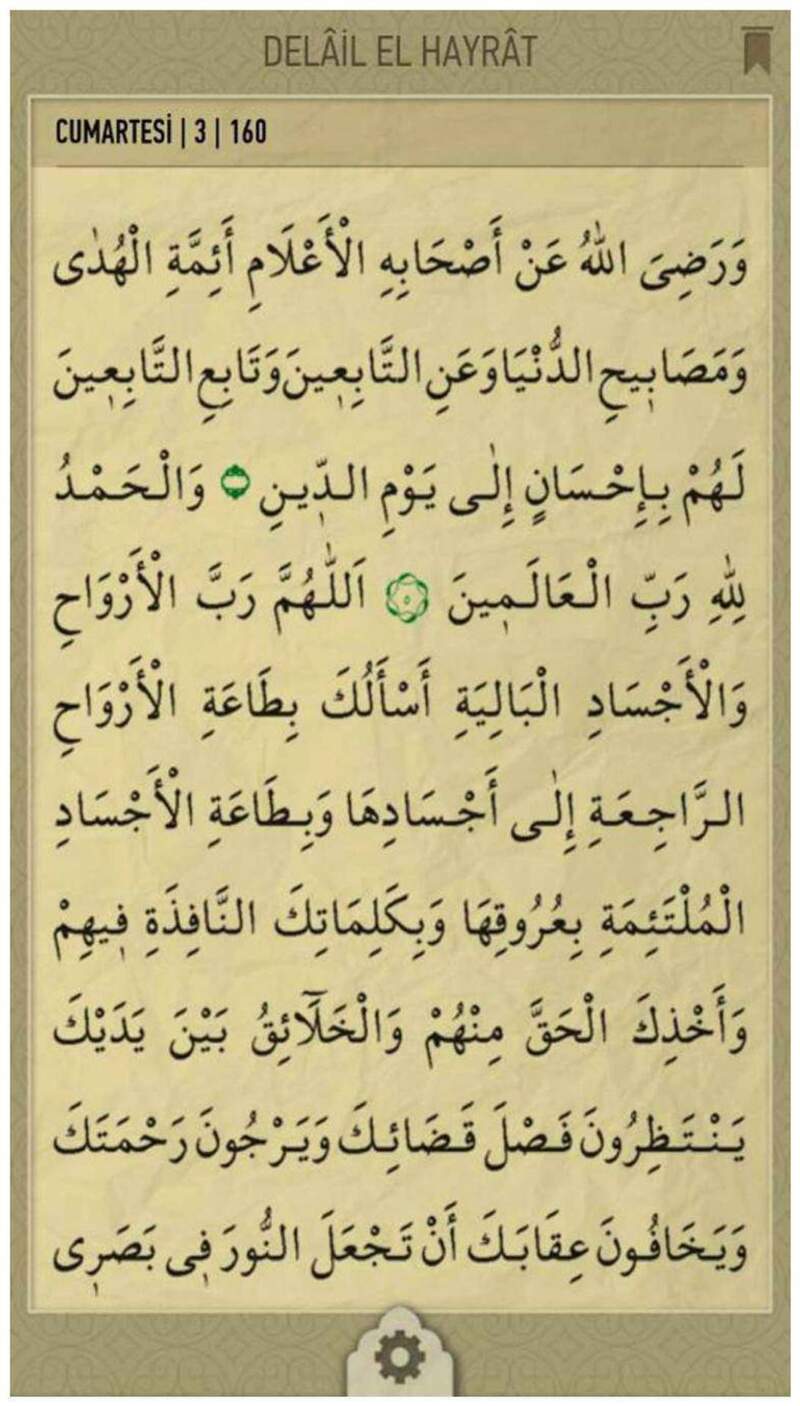 DELÂİL EL HAYRÂT
CUMARTESİ | 3 | 160
وَرَضِىَ اللهُ عَنْ أَصْحَابِهِ الْأَعْلَامِ أَئِمَّةِ الْهُدٰى
وَمَصَابِيحِ الدُّنْيَا وَعَنِ التَّابِعِينَ وَتَابِعِ التَّابِعِينَ
لَهُمْ بِإِحْسَانٍ إِلٰى يَوْمِ الدِّينِ وَالْحَمْدُ
لِلهِ رَبِّ الْعَالَمِينَ اَللّٰهُمَّ رَبَّ الْأَرْوَاحِ
وَالْأَجْسَادِ الْبَالِيَةِ أَسْأَلُكَ بِطَاعَةِ الْأَرْوَاحِ
الرَّاجِعَةِ إِلٰى أَجْسَادِهَا وَبِطَاعَةِ الْأَجْسَادِ
الْمُلْتَئِمَةِ بِعُرُوقِهَا وَبِكَلِمَاتِكَ النَّافِذَةِ فِيهِمْ
وَأَخْذِكَ الْحَقَّ مِنْهُمْ وَالْخَلَٓائِقُ بَيْنَ يَدَيْكَ
يَنْتَظِرُونَ فَصْلَ قَضَائِكَ وَيَرْجُونَ رَحْمَتَكَ
وَيَخَافُونَ عِقَابَكَ أَنْ تَجْعَلَ النُّورَ فِى بَصَرِى